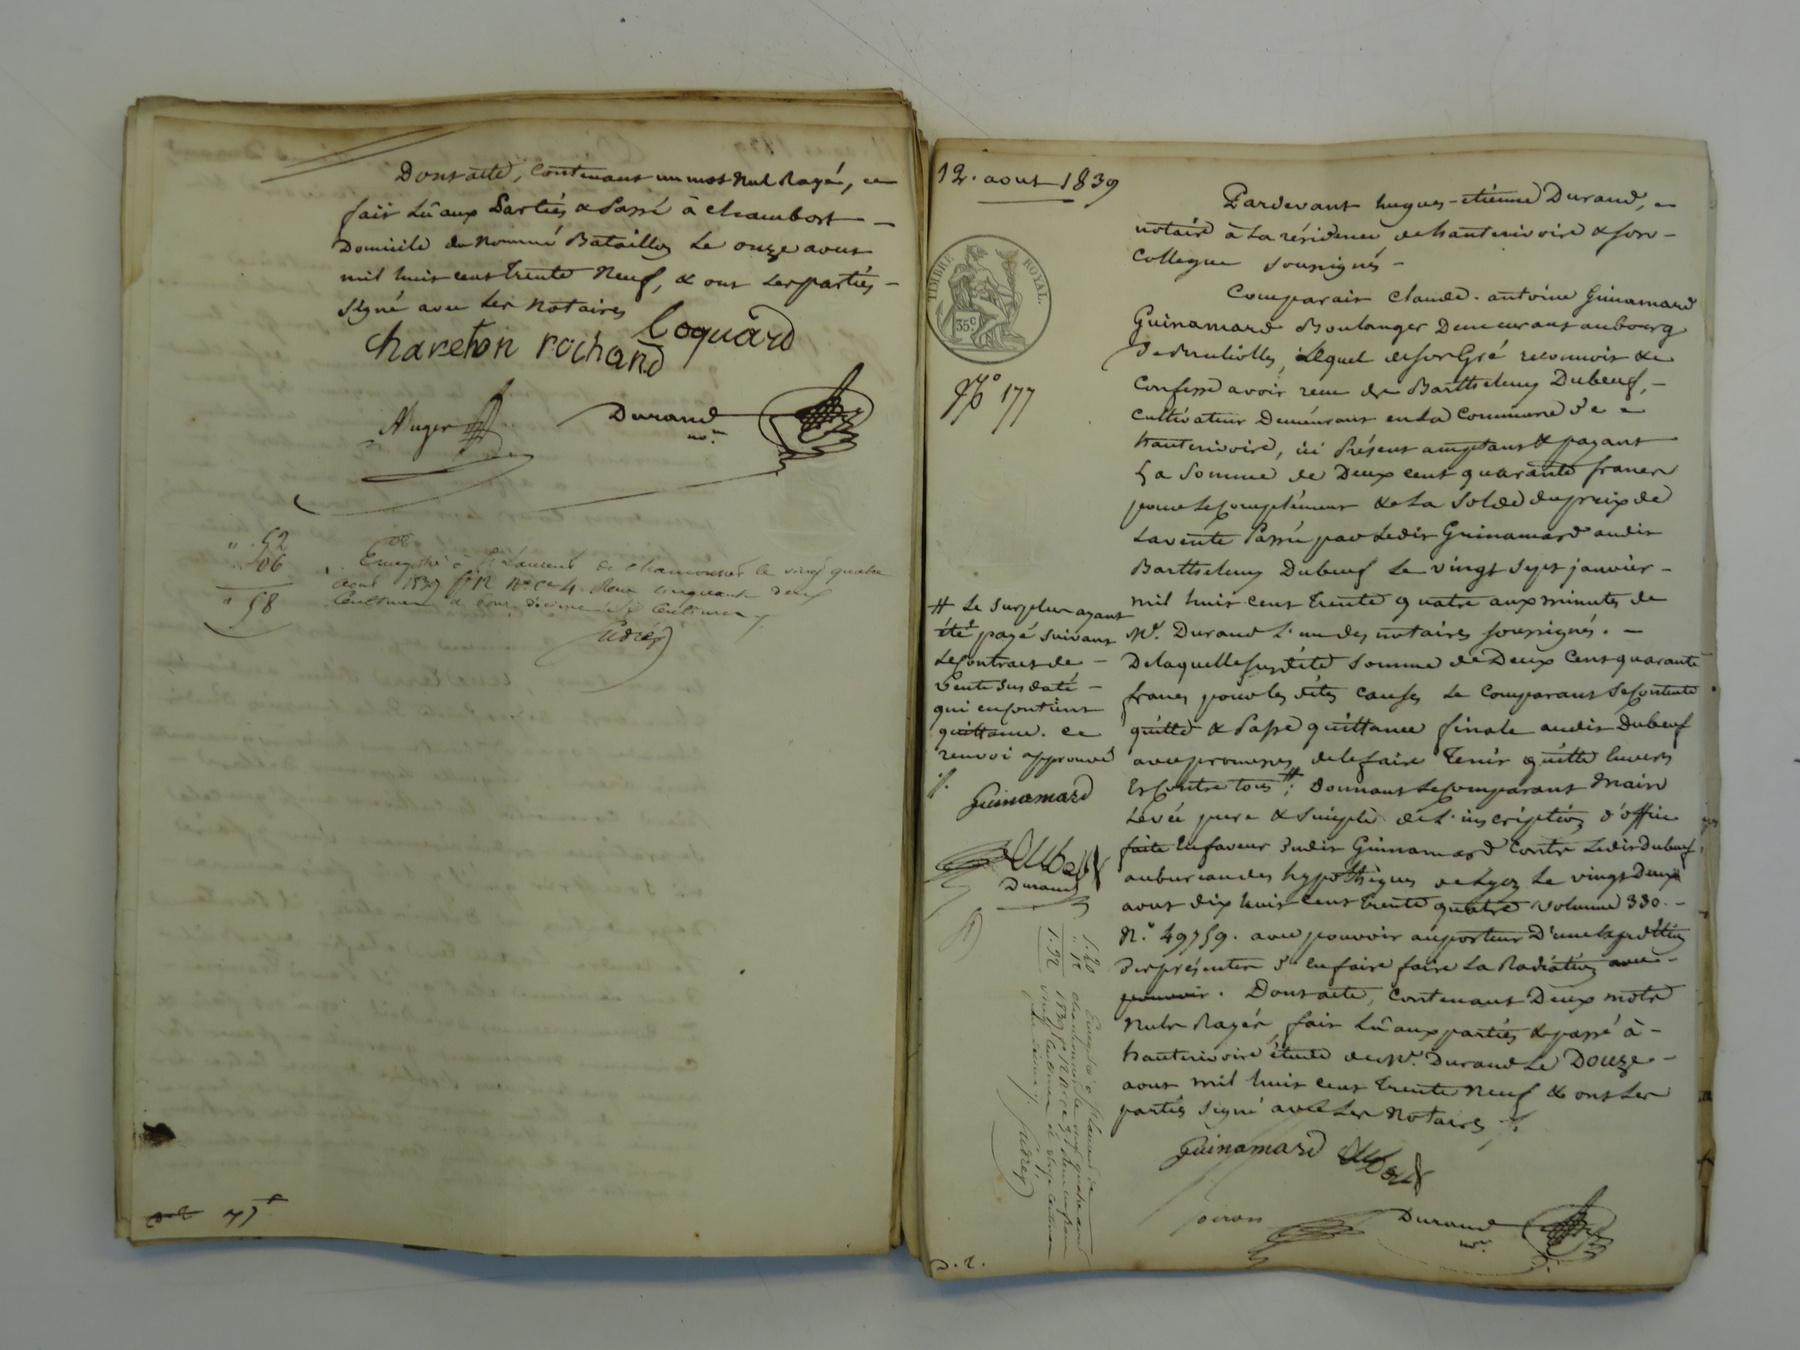 Dont acte, contenant un mot nul rayé,
fait Lû aux Parties & Passé à chambost
Domicile du nommé Bataillon Le onze aout
mil huit cent trente Neuf, & ont Les parties
signé avec Les Notaires
Coquard
chareton rochand
Auger
Durand
nre
" . 52
. 06
" 58
Enregistré à St Laurent de chamousset le vingt quatre
aout 1839 fo 12 Ro Ce 4. Reçu cinquante deux
centimes & pour décime six centimes
12. aout 1839
TIMBRE ROYAL.
35c
No 177
Pardevant hugues-étienne Durand,
notaire à La résidence de hauterivoire & son
Collegue soussignés
Comparait claude. antoine Guinamard
Guinamard Boulanger Demeurant au bourg
de Brulliolles, Lequel de son Gré reconnoit &
Confesse avoir reçu de Barthelemy Dubeuf,
cultivateur Demeurant en La Commune de
hauterivoire, ici Présent acceptant & payant
La Somme de Deux cent quarante francs
pour Le complément & La Solde du prix de
La vente Passée par Ledit Guinamard audit
Barthelemy Dubeuf Le vingt sept janvier
mil huit cent trente quatre aux minutes de
Me. Durand L'un des notaires soussignés.
De laquelle susdite Somme de Deux Cent quarante
francs pour les dites causes Le Comparant Se contente
quitte & Passe quittance finale audit Dubeuf
avec promesses de le faire Tenir quitte Envers
Et Contre tous #; Donnant Le comparant Main
Levée pure & Simple de L'inscription d'office
faite En faveur dudit Guinamard Contre Ledit Dubeuf,
au bureau des hypothèques de Lyon Le vingt Deux
aout dix huit cent trente quatre volume 330.
N.o 49759. avec pouvoir au porteur D'une Expédition
Des présentes d'En faire faire La Radiation avec
pouvoir. Dont acte, Contenant Deux mots
Nuls Rayés, fait Lû aux parties & passé à
hauterivoire étude de Me. Durand Le Douze
aout mil huit cent trente Neuf & ont Les
parties signé avec Les Notaires
Guinamard Dubeuf
Durand
nre
# Le Surplus ayant
été payé suivant
Le Contrat de
Vente Susdaté
qui en contient
quittance. Ce
renvoi approuvé
Guinamard
Dubeuf
Durand
1.20
" 12
1.32
Enregistré à St Laurent de
chamousset le vingt quatre aout
1839 fo 12 Ro Ce 5. Reçu un franc
vingt centimes & douze centimes
pour décime